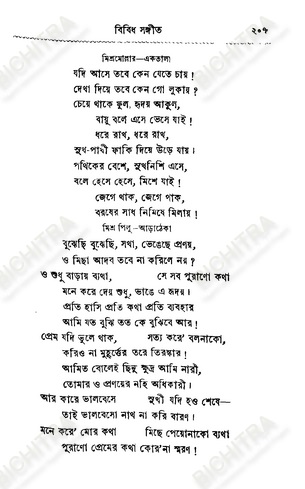 বিবিধ সঙ্গীত ২০৭
মিশ্রমোল্লার—একতালা
যদি আসে তবে কেন যেতে চায়!
দেখা দিয়ে তবে কেন গো লুকায়?
চেয়ে থাকে ফুল, হৃদয় আকুল,
বায়ু বলে এসে ভেসে যাই!
ধরে রাখ, ধরে রাখ,
সুখ-পাখী ফাকি দিয়ে উড়ে যায়।
পথিকের বেশে, সুখনিশি এসে,
বলে হেসে হেসে, মিশে যাই!
জেগে থাক, জেগে থাক,
বরষের সাধ নিমিষে মিলায়!
মিশ্র পিলু—আড়াঠেকা
বুঝেছি বুঝেছি, সখা, ভেঙেছে প্রণয়,
ও মিছা আদর তবে না করিলে নয়?
ও শুধু বাড়ায় ব্যথা, সে সব পুরাণো কথা
মনে করে দেয় শুধু, ভাঙে এ হৃদয়।
প্রতি হাসি প্রতি কথা প্রতি ব্যবহার
আমি যত বুঝি তত কে বুঝিবে আর!
প্রেম যদি ভুলে থাক, সত্য করে' বলনাকো,
করিও না মুহূর্ত্তের তরে তিরস্কার!
আমিত বোলেই ছিনু ক্ষুদ্র আমি নারী,
তোমার ও প্রণয়ের নহি অধিকারী।
আর কারে ভালবেসে সুখী যদি হও শেষে—
তাই ভালবেসো নাথ না করি বারণ।
মনে করে' মোর কথা মিছে পেয়োনাকো ব্যথা
পুরাণো প্রেমের কথা কোর'না স্মরণ!
BICHITRA